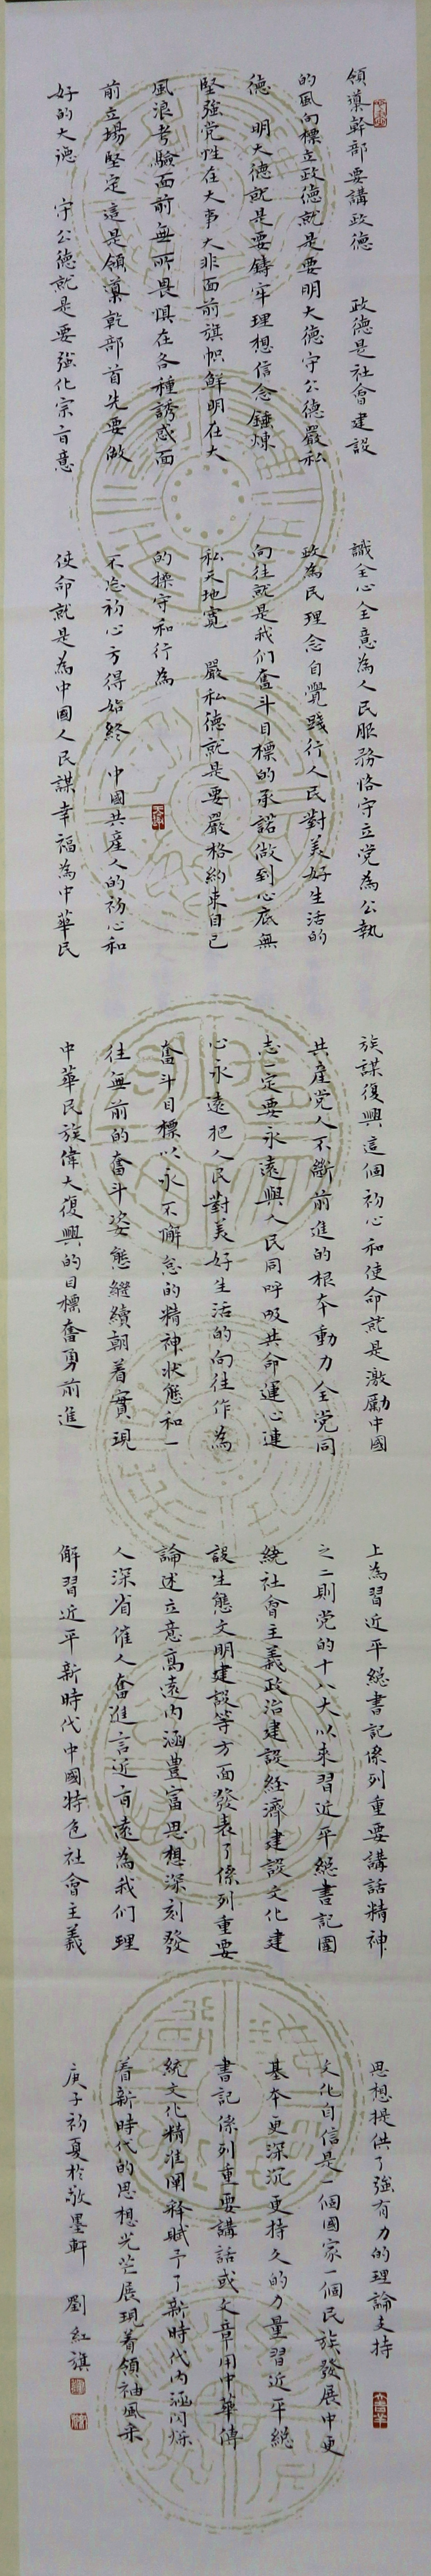 領導幹部要講政德 政德是社會建設
的風向標立政德就是要明大德守公德嚴私
德 明大德就是要鑄牢理想信念錘煉
堅強党性在大事大非面前旗幟鮮明在大
風浪考驗面前無所畏惧在各種誘惑面
前立場堅定這是領導乾部首先要做
好的大德 守公德就是要強化宗旨意
識全心全意為人民服務恪守立党為公執
政為民理念自覺踐行人民對美好生活的
向往就是我们奮斗目標的承諾做到心底無
私天地寬 嚴私德就是要嚴格約束自己
的操守和行為
不忘初心方得始終 中國共產人的初心和
使命就是為中國人民謀幸福為中華民
族謀復興這個初心和使命就是激勵中國
共產党人不斷前進的根本動力全党同
志一定要永遠與人民同呼吸共命運心連
心永遠把人民對美好生活的向往作為
奮斗目標以永不懈怠的精神狀態和一
往無前的奮斗姿態繼續朝着實現
中華民族偉大復興的目標奮勇前進
上為習近平總書記係列重要講話精神
之二則党的十八大以來習近平總書記圍
繞社會主義政治建設經濟建設文化建
設生態文明建設等方面發表了係列重要
論述立意高遠内涵豊富思想深刻發
人深省催人奮進言近旨遠為我们理
解習近平新時代中國特色社會主義
思想提供了強有力的理論支持
文化自信是一個國家一個民族發展中更
基本更深沉更持久的力量習近平總
書記係列重要講話或文章用中華傳
統文化精准闡釋賦予了新時代内涵闪烁
着新時代的思想光芒展現着領袖風采
庚子初夏於敬墨軒 劉紅旗